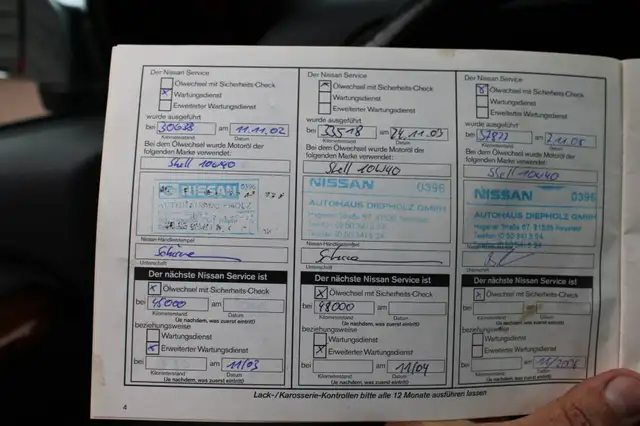 Der Nissan Service
Ölwechsel mit Sicherheits-Check
Wartungsdienst
Erweiterter Wartungsdienst
wurde ausgeführt
bei 30628 am 11.11.02
Kilometerstand Datum
Bei dem Ölwechsel wurde Motoröl der
folgenden Marke verwendet:
Shell 10W40
NISSAN 0396
Nissan-Händlerstempel
Unterschrift
Der nächste Nissan Service ist
Ölwechsel mit Sicherheits-Check
bei 45000 am
Kilometerstand Datum
(Je nachdem, was zuerst eintritt)
beziehungsweise
Wartungsdienst
Erweiterter Wartungsdienst
bei am 11/03
Kilometerstand Datum
(Je nachdem, was zuerst eintritt)
Der Nissan Service
Ölwechsel mit Sicherheits-Check
Wartungsdienst
Erweiterter Wartungsdienst
wurde ausgeführt
bei 33518 am 24.11.03
Kilometerstand Datum
Bei dem Ölwechsel wurde Motoröl der
folgenden Marke verwendet:
Shell 10W40
NISSAN 0396
AUTOHAUS DIEPHOLZ GMBH
Nissan-Händlerstempel
Unterschrift
Der nächste Nissan Service ist
Ölwechsel mit Sicherheits-Check
bei 48000 am
Kilometerstand Datum
(Je nachdem, was zuerst eintritt)
beziehungsweise
Wartungsdienst
Erweiterter Wartungsdienst
bei am 11/04
Kilometerstand Datum
(Je nachdem, was zuerst eintritt)
Der Nissan Service
Ölwechsel mit Sicherheits-Check
Wartungsdienst
Erweiterter Wartungsdienst
wurde ausgeführt
bei am
Kilometerstand Datum
Bei dem Ölwechsel wurde Motoröl der
folgenden Marke verwendet:
Shell 10W40
NISSAN 0396
AUTOHAUS DIEPHOLZ GMBH
Nissan-Händlerstempel
Unterschrift
Der nächste Nissan Service ist
Ölwechsel mit Sicherheits-Check
bei am
Kilometerstand Datum
(Je nachdem, was zuerst eintritt)
beziehungsweise
Wartungsdienst
Erweiterter Wartungsdienst
bei am 11/2006
Kilometerstand Datum
(Je nachdem, was zuerst eintritt)
Lack-/Karosserie-Kontrollen bitte alle 12 Monate ausführen lassen
4